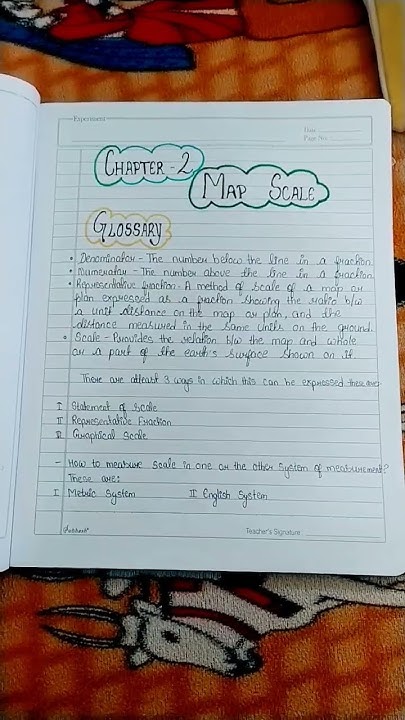 Experiment
Date
Page No.
CHAPTER-2
MAP SCALE
GLOSSARY
• Denominator - The number below the line in a fraction
• Numerator - The number above the line in a fraction
• Representative fraction - A method of scale of a map or
plan expressed as a fraction showing the ratio b/w
a unit distance on the map or plan, and the
distance measured in the same units on the ground.
• Scale - Provides the relation b/w the map and whole
or a part of the earth's surface shown on it.
There are atleast 3 ways in which this can be expressed these are:
I Statement of Scale
II Representative Fraction
III Graphical Scale
- How to measure scale in one or the other system of measurement?
These are:
I Metric System II English System
Teacher's Signature